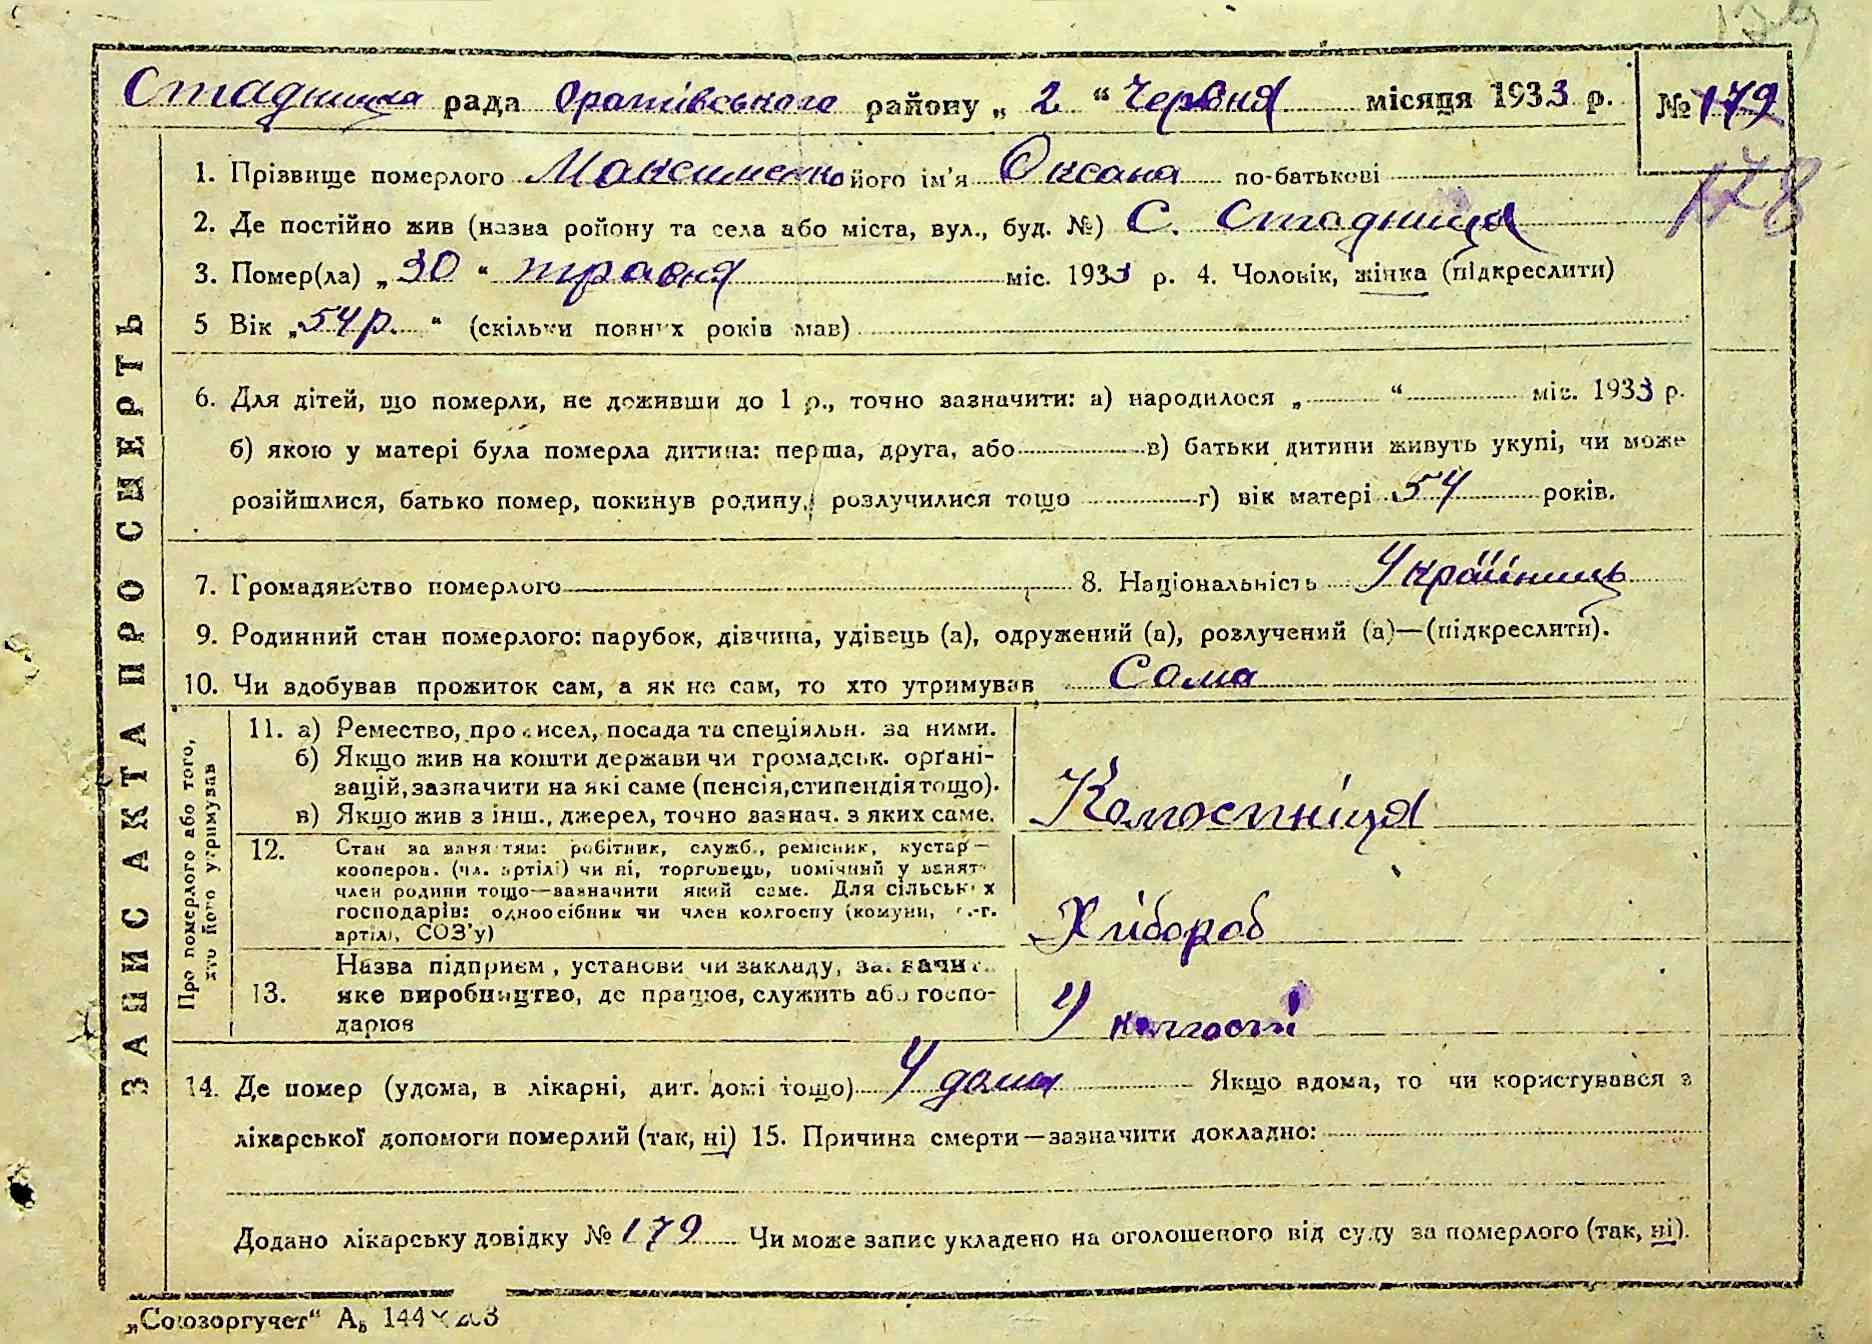 Стадницка рада Оратівського району „ 2 “ Червня місяця 1933 р. № 179
178
1. Прізвище померлого Максименко його ім'я Оксана по-батькові
2. Де постійно жив (назва району та села або міста, вул., буд. №) С. Стадниця
3. Помер(ла) „ 30 “ травня міс. 1933 р. 4. Чоловік, жінка (підкреслити)
5 Вік „ 54 р. “ (скільки повних років мав)
6. Для дітей, що померли, не доживши до 1 р., точно зазначити: а) народилося „ “ міс. 1933 р.
б) якою у матері була померла дитина: перша, друга, або в) батьки дитини живуть укупі, чи може
розійшлися, батько помер, покинув родину, розлучилися тощо г) вік матері 54 років.
7. Громадянство померлого 8. Національність Українець
9. Родинний стан померлого: парубок, дівчина, удівець (а), одружений (а), розлучений (а)—(підкреслити).
10. Чи здобував прожиток сам, а як не сам, то хто утримував Сама
ЗАПИС АКТА ПРО СМЕРТЬ
Про померлого або того,
хто його утримував
11. а) Ремество, промисел, посада та спеціяльн. за ними.
б) Якщо жив на кошти держави чи громадськ. орґані-
зацій, зазначити на які саме (пенсія, стипендія тощо).
в) Якщо жив з інш., джерел, точно зазнач. з яких саме.
Колгоспніця
12. Стан за заняттям: робітник, служб., ремісник, кустар—
кооперов. (чл. артілі) чи ні, торговець, помічний у занят.
член родини тощо—зазначити який саме. Для сільських
господарів: одноосібник чи член колгоспу (комуни, с.-г.
артілі, СОЗ'у)
Хлібороб
13. Назва підприєм, установи чи закладу, зазначит.
яке виробництво, де працює, служить або госпо-
дарює
У колгоспі
14. Де помер (удома, в лікарні, дит. домі тощо) У дома Якщо вдома, то чи користувався з
лікарської допомоги померлий (так, ні) 15. Причина смерти—зазначити докладно:
Додано лікарську довідку № 179 Чи може запис укладено на оголошеного від суду за померлого (так, ні).
„Союзоргучет“